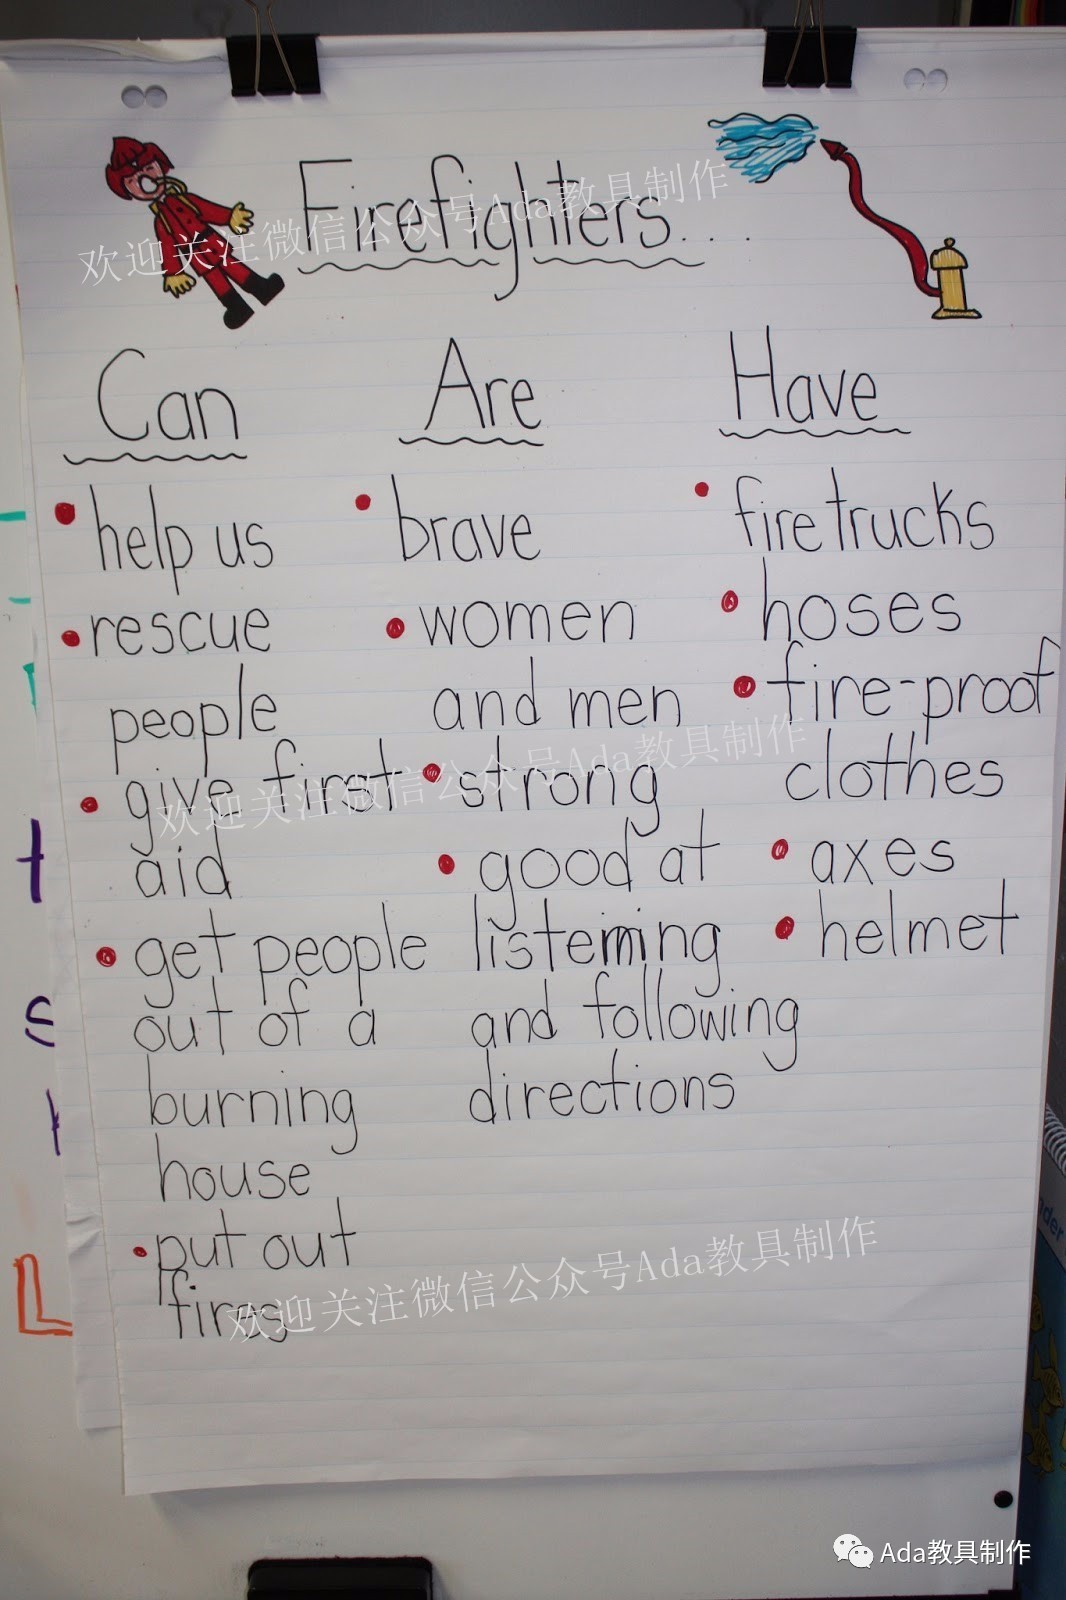 Firefighters...
欢迎关注微信公众号Ada教具制作
Can
help us
rescue
people
give first
aid
get people
out of a
burning
house
put out
fires
Are
brave
women
and men
strong
good at
listening
and following
directions
Have
fire trucks
hoses
fire-proof
clothes
axes
helmet
欢迎关注微信公众号Ada教具制作
欢迎关注微信公众号Ada教具制作
Ada教具制作